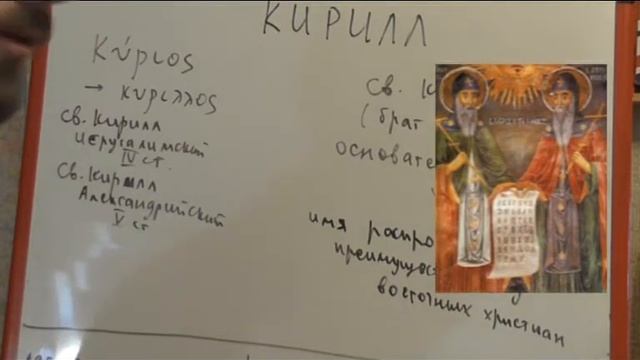 КИРИЛЛ
Κύριος
→ κυριλλος
Св. Кирилл
Иерусалимский
IV ст.
Св. Кирилл
Александрийский
V ст
Св. К
(брат
основате
имя распро
преимущес
восточных христиан